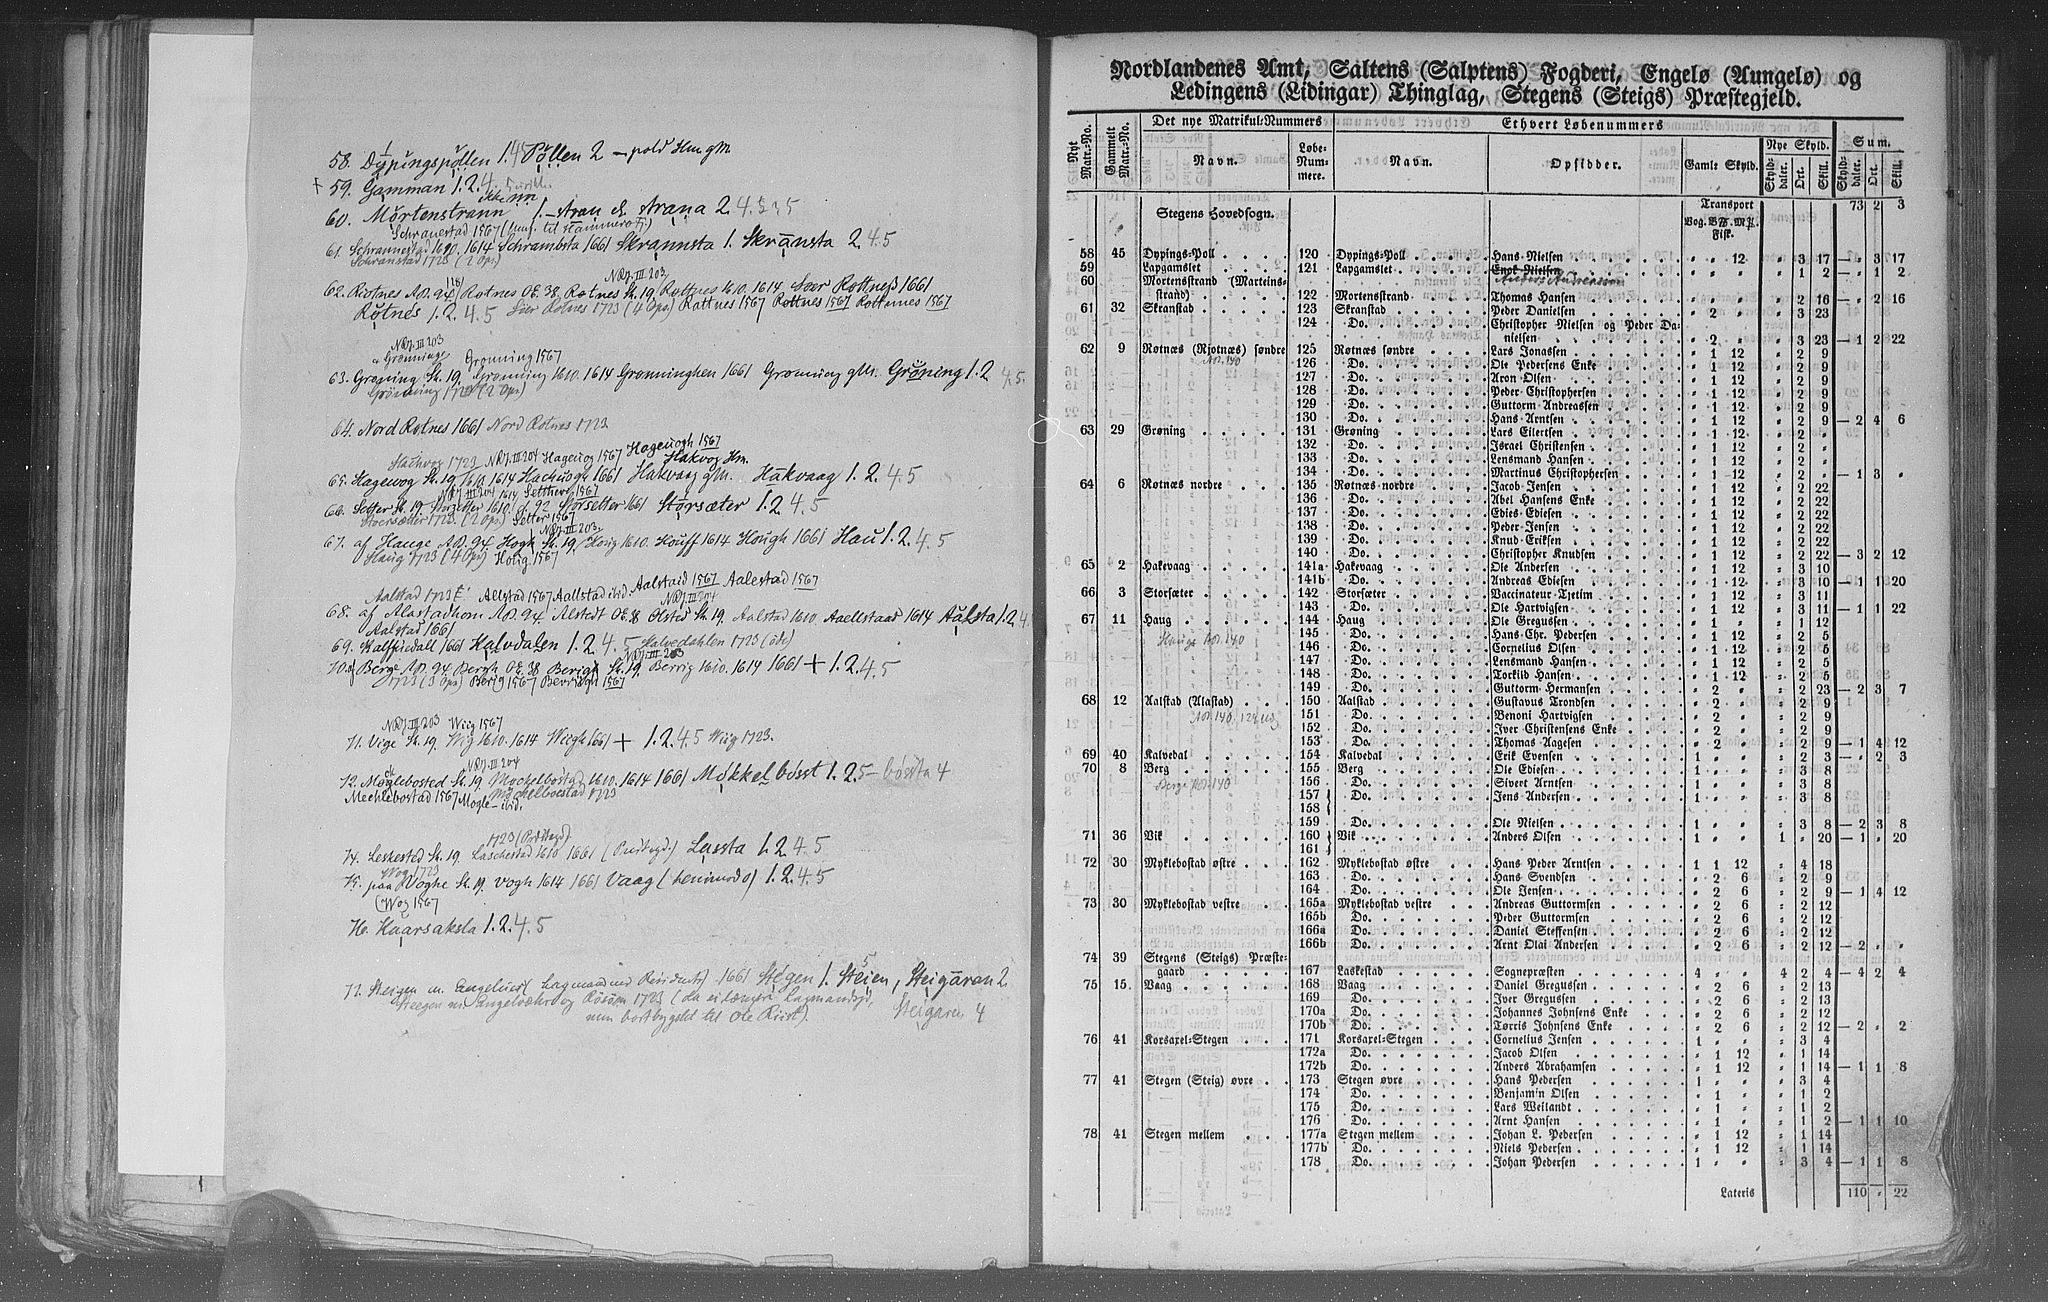 58. Dypingspollen 1.4.5 Pollen 2 – pold Hm glM
+ 59. Gamman 1.2.4.
60. Mörtenstrann 1. – stran el. strana 2 4.5
Schranestad 1567
61. Schrannestad 1610. 1614 Schrambsta 1661 Skrannsta 1. Skränsta 2. 4.5
Schranstad 1723 (2 Ops.)
NRJ. III 203.
62. Riotnes AB. 94 Rotnes OE. 38. Rotnes Sk. 19 Rottnes 1610. 1614 Søer Rottness 1661
Røtnes 1.2. 4.5 Søer Rotnes 1723 (4 Ops.) Rattnes 1567 Rottnes 1567 Rottennes 1567
NRJ. III 203
Grønninge Grønning 1567
63. Grøning Sk. 19. Grønning 1610. 1614 Grønninghen 1661 Grønning glM. Gröning 1.2 4.5.
Grønning 1723 (2 Ops.)
64. Nord Rotnes 1661 Nord Rotnes 1723
Hachvog 1723 NRJ. III 204 Hageuog 1567 Hageuogh 1567
Hakvog Hm.
65. Hagevog Sk. 19 1610. 1614 Hachuogh 1661 Hakvaag glM. Håkvaag 1.2. 4.5
NRJ. III 204 Setther 1567
66. Setter Sk. 19. Storsetter 1610. Storsetter 1661 Störsæter 1.2 4.5
Stoersætter 1723. (2 Ops.) Setter 1567
NRJ. III 203.
67. af Hauge AB. 94 Hogh Sk. 19. Houg 1610. Houff 1614 Hough 1661 Hau 1.2. 4.5
Haug 1723 (4 Ops) Holig 1567
Aalstad 1723 Allstad 1567 Aallstad ibid. Aalstaid 1567 Aalestad 1567
NRJ. III 204
68. af Alastadhom AB. 94. Alstedt OE. 38 Olsted Sk. 19. Aalstad 1610 Aaellstaad 1614 Aalsta 1.2 4
Aalstad 1661
69. Kalffuedall 1661 Kalvdalen 1.2. 4. 5 Kalvedahlen 1723 (øde)
NRJ. III 203
70. af Berge AB. 94. Bergh OE. 38 Berigh Sk. 19. Berrig 1610. 1614 1661 + 1.2. 4.5
1723 (3 Ops) Berig 1567 Bevrigh 1567
NRJ. III 203 Wiig 1567
71. Vige Sk. 19. Wig 1610. 1614 Wiigh 1661 + 1.2. 4.5 Wiig 1723.
NRJ. III 204
72. Moglebosted Sk. 19 Myckelbostad 1610. 1614 1661 Møkkelbösst 1.2. 5 – bössta 4
Mechlebostad 1567 Mogle – ibid. Myckelboestad 1723
1723 (Prestegd).
74. Leskested Sk. 19. Laschestad 1610 1661 (Prestegd.) Lassta 1.2. 4.5
Wog 1723
75. paa Woghe Sk. 19. vogh 1614 1661 Vaag (hemimodo) 1.2. 4.5
(Wog 1567
76. Kaarsaksla 1.2. 4.5
77. Steigen m. Engeluer (Lagmannens Residents) 1661 Stegen 1. Steien, 5 Steigåran 2
Steegen m. Engelvæhr og Røsøen 1723 (da ei længer Lagmandsgd., Steigaren 4
men bortbygslet til Ole Rist).
Nordlandenes Amt, Saltens (Salptens) Fogderi, Engelø (Aungelø) og
Ledingens (Lidingar) Thinglag, Stegens (Steigs) Præstegjeld.
Nyt Matr.-No. Gammelt Matr.-No. Det nye Matrikul-Nummers Ethvert Løbenummers
Navn. Løbe-Nummere. Navn. Opsidder. Gamle Skyld. Nye Skyld. Sum.
Skylddaler. Ort. Skill. Skylddaler. Ort. Skill.
Stegens Hovedsogn. Transport 73 2 3
Vog. B℔. M℔.
Fisk.
58 45 Dypings-Poll 120 Dypings-Poll Hans Nielsen " " 12 " 3 17 – 3 17
59 Lapgamslet 121 Lapgamslet Enok Nielsen " " " " 1 2 – " 1 2
Anders Andreassen
60 Mortensstrand (Marteins-
strand) 122 Mortensstrand Thomas Hansen " " " " 2 16 – " 2 16
61 32 Skranstad 123 Skranstad Peder Danielsen " 2 " " 3 23
124 Do. Christopher Nielsen og Peder Da-
nielsen " 2 " " 3 23 – 1 2 22
62 9 Rotnæs (Rjotnæs) søndre 125 Rotnæs søndre Lars Jonassen " 1 12 " 2 9
AB. 140
126 Do. Ole Pedersens Enke " 1 12 " 2 9
127 Do. Aron Olsen " 1 12 " 2 9
128 Do. Peder Christophersen " 1 12 " 2 9
129 Do. Guttorm Andreassen " 1 12 " 2 9
130 Do. Hans Arntsen " 1 12 " 2 9 – 2 4 6
63 29 Grøning 131 Grøning Lars Eilertsen " 1 12 " 2 "
132 Do. Israel Christensen " 1 12 " 2 "
133 Do. Lensmand Hansen " 1 12 " 2 "
134 Do. Martinus Christophersen " 1 12 " 2 " – 1 3 "
64 6 Rotnæs nordre 135 Rotnæs nordre Jacob Jensen " 1 12 " 2 22
136 Do. Abel Hansens Enke " 1 12 " 2 22
137 Do. Edies Ediesen " 1 12 " 2 22
138 Do. Peder Jensen " 1 12 " 2 22
139 Do. Knud Eriksen " 1 12 " 2 22
140 Do. Christopher Knudsen " 1 12 " 2 22 – 3 2 12
65 2 Hakevaag 141a Hakevaag Ole Andersen " 1 12 " 3 10
141b Do. Andreas Ediesen " 1 12 " 3 10 – 1 1 20
66 3 Storsæter 142 Storsæter Vaccinateur Tjetim " 1 12 " 3 11
143 Do. Ole Hartvigsen " 1 12 " 3 11 – 1 1 22
67 11 Haug 144 Haug Ole Gregusen " 1 " " 1 12
Hauge AB. 140
145 Do. Hans Chr. Pedersen " 1 12 " 2 5
146 Do. Cornelius Olsen " 1 12 " 2 5
147 Do. Lensmand Hansen " 1 12 " 2 5
148 Do. Torkild Hansen " 1 12 " 2 5
149 Do. Guttorm Hermansen " 2 " " 2 23 – 2 3 7
68 12 Aalstad (Alastad) 150 Aalstad Gustavus Trondsen " 2 " " 2 9
AB. 140
151 Do. Benoni Hartvigsen " 2 " " 2 9
152 Do. Iver Christensens Enke " 2 " " 2 9
153 Do. Thomas Aagesen " 2 " " 2 9 – 1 4 12
69 40 Kalvedal 154 Kalvedal Erik Evensen 1 " " " 2 3 – " 2 3
70 8 Berg 155 Berg Ole Ediesen 1 " " " 3 8
Berge AB. 140
156 Do. Sivert Arntsen 1 " " " 3 8
157 Do. Jens Andersen 1 " " " 3 8
158
159 Do. Ole Nielsen 1 " " " 3 8 – 2 3 8
71 36 Vik 160 Vik Anders Olsen 1 " " 1 " 20 – 1 " 20
161
72 30 Myklebostad østre 162 Myklebostad østre Hans Peder Arntsen 1 1 12 " 4 18
163 Do. Hans Svendsen " 2 6 " 2 9
164 Do. Ole Jensen " 2 6 " 2 9 – 1 4 12
73 30 Myklebostad vestre 165a Myklebostad vestre Andreas Guttormsen " 2 6 " 2 12
165b Do. Peder Guttormsen " 2 6 " 2 12
166a Do. Daniel Steffensen " 2 6 " 2 12
166b Do. Arnt Olai Andersen " 2 6 " 2 12 – 2 " "
74 39 Stegens (Steigs) Præste-
gaard 167 Laskestad Sognepræsten 4 " " 4 2 4 – 4 2 4
75 15. Vaag 168 Vaag Daniel Gregussen " 2 6 " 2 13
169 Do. Iver Gregussen " 2 6 " 2 13
170a Do. Johannes Johnsens Enke " 2 6 " 2 12
170b Do. Tørris Johnsens Enke " 2 6 " 2 12 – 2 " 2
76 41 Korsaxel-Stegen 171 Korsaxel-Stegen Cornelius Jensen 1 " " " 3 4
172a Do. Jacob Olsen " 1 12 " 1 14
172b Do. Anders Abrahamsen " 1 12 " 1 14 – 1 1 8
77 41 Stegen (Steig) øvre 173 Stegen øvre Hans Pedersen 1 " " " 3 4
174 Do. Benjamin Olsen " 1 " " 1 2
175 Do. Lars Weilandt " 1 " " 1 2
176 Do. Arnt Hansen " 1 " " 1 2 – 1 1 10
78 41 Stegen mellem 177a Stegen mellem Johan L. Pedersen " 1 12 " 1 14
177b Do. Niels Pedersen " 1 12 " 1 14
178 Do. Johan Pedersen 1 " " " 3 4 – 1 1 8
Lateris 110 " 22